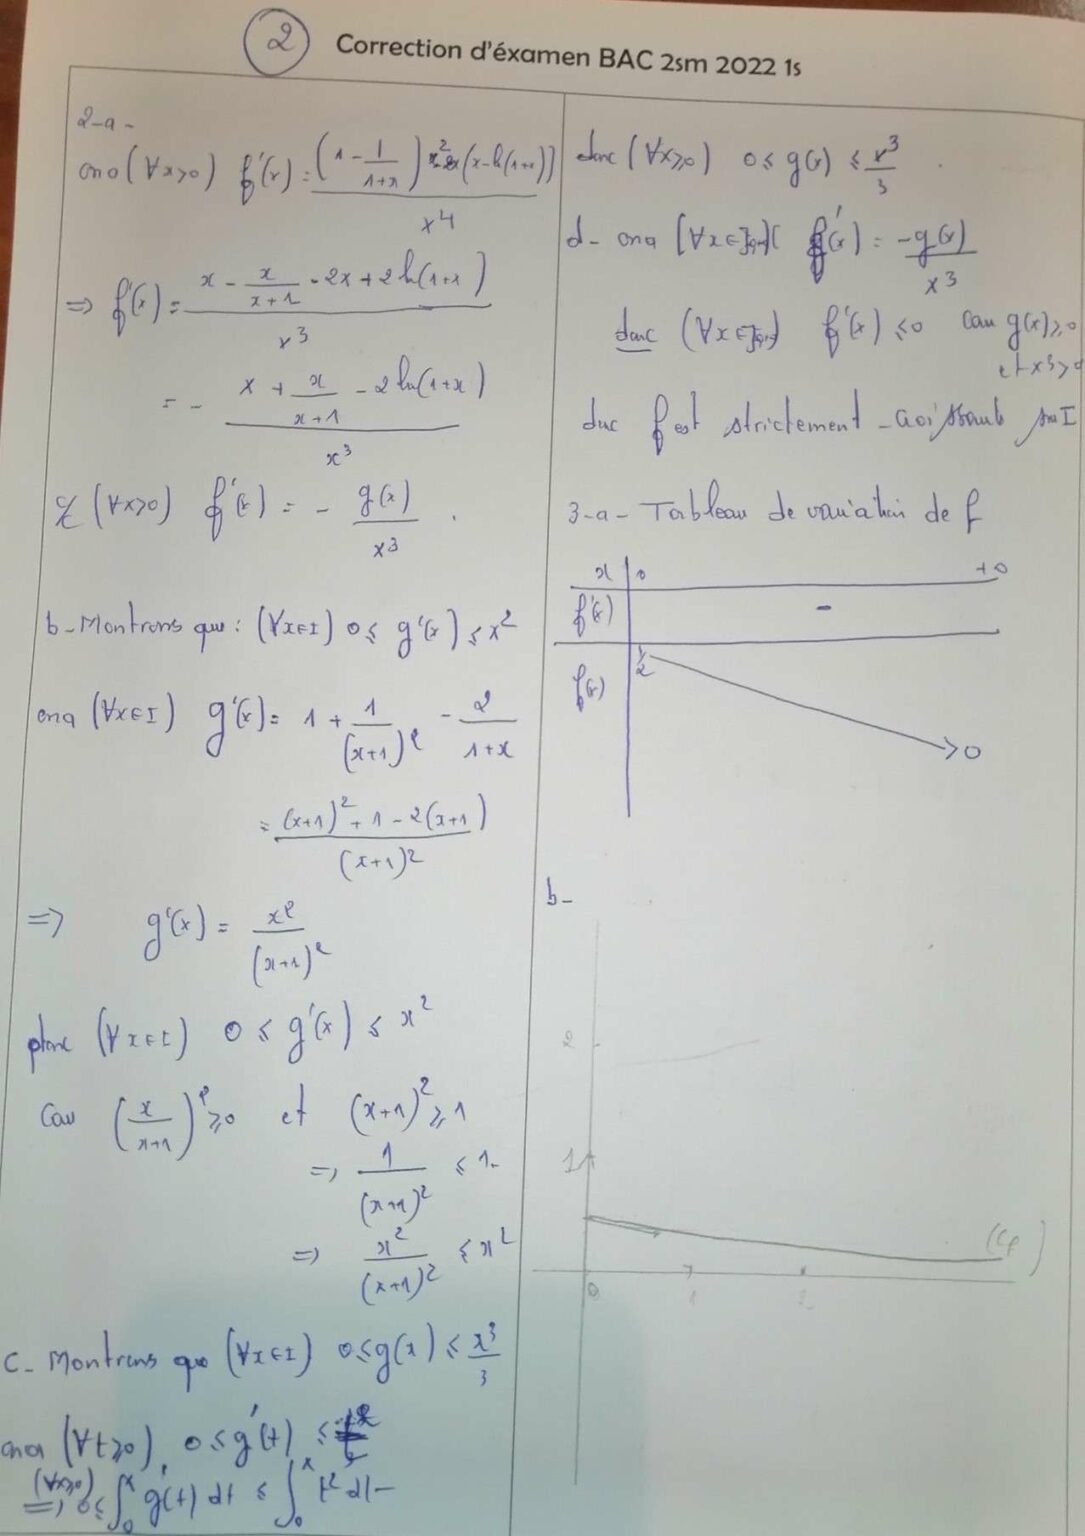 2
Correction d'éxamen BAC 2sm 2022 1s
2-a-
ona (∀x>0) f'(x) = ((1 - 1/(1+x)) x² - 2x(x-ln(1+x)))/x⁴
=> f'(x) = (x - x/(x+1) - 2x + 2ln(1+x))/x³
= - (x + x/(x+1) - 2ln(1+x))/x³
(∀x>0) f'(x) = - g(x)/x³ .
b-Montrons que: (∀x∈I) 0≤ g'(x) ≤x²
ona (∀x∈I) g'(x) = 1 + 1/(x+1)² - 2/(1+x)
= ((x+1)² + 1 - 2(x+1))/(x+1)²
=> g'(x) = x²/(x+1)²
donc (∀x∈I) 0 ≤ g'(x) ≤ x²
Car (x/(x+1))² ≥0 et (x+1)² ≥ 1
=> 1/(x+1)² ≤ 1-
=> x²/(x+1)² ≤ x²
C- Montrons que (∀x∈I) 0≤g(x) ≤ x³/3
ona (∀t≥0), 0≤g'(t) ≤ t²
(∀x≥0)
=> 0≤ ∫₀ˣ g'(t) dt ≤ ∫₀ˣ t² dt-
donc (∀x≥0) 0≤ g(x) ≤ x³/3 .
d- ona (∀x∈]0,+∞[ f'(x) = -g(x)/x³
donc (∀x∈]0,+∞[) f'(x) ≤0 Car g(x)≥0
et x³>0
f est strictement sur I
3-a- Tableau de variation de f
x 0 +∞
f'(x) -
f(x) 1/2 0
b-
2
1
(Cf)
0 1 2